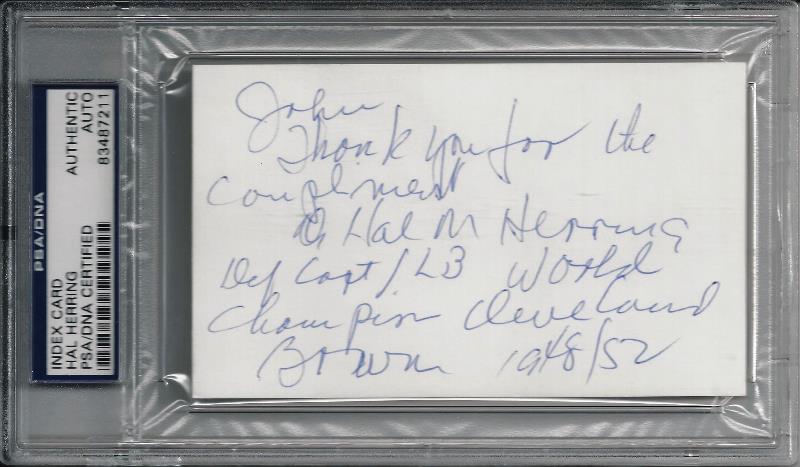 PSA/DNA
INDEX CARD
HAL HERRING
PSA/DNA CERTIFIED
AUTHENTIC
AUTO
83487211
John
Thank you for the
Compliment
Hal M Herring
Def Capt / LB World
Champion Cleveland
Brown 1948/52